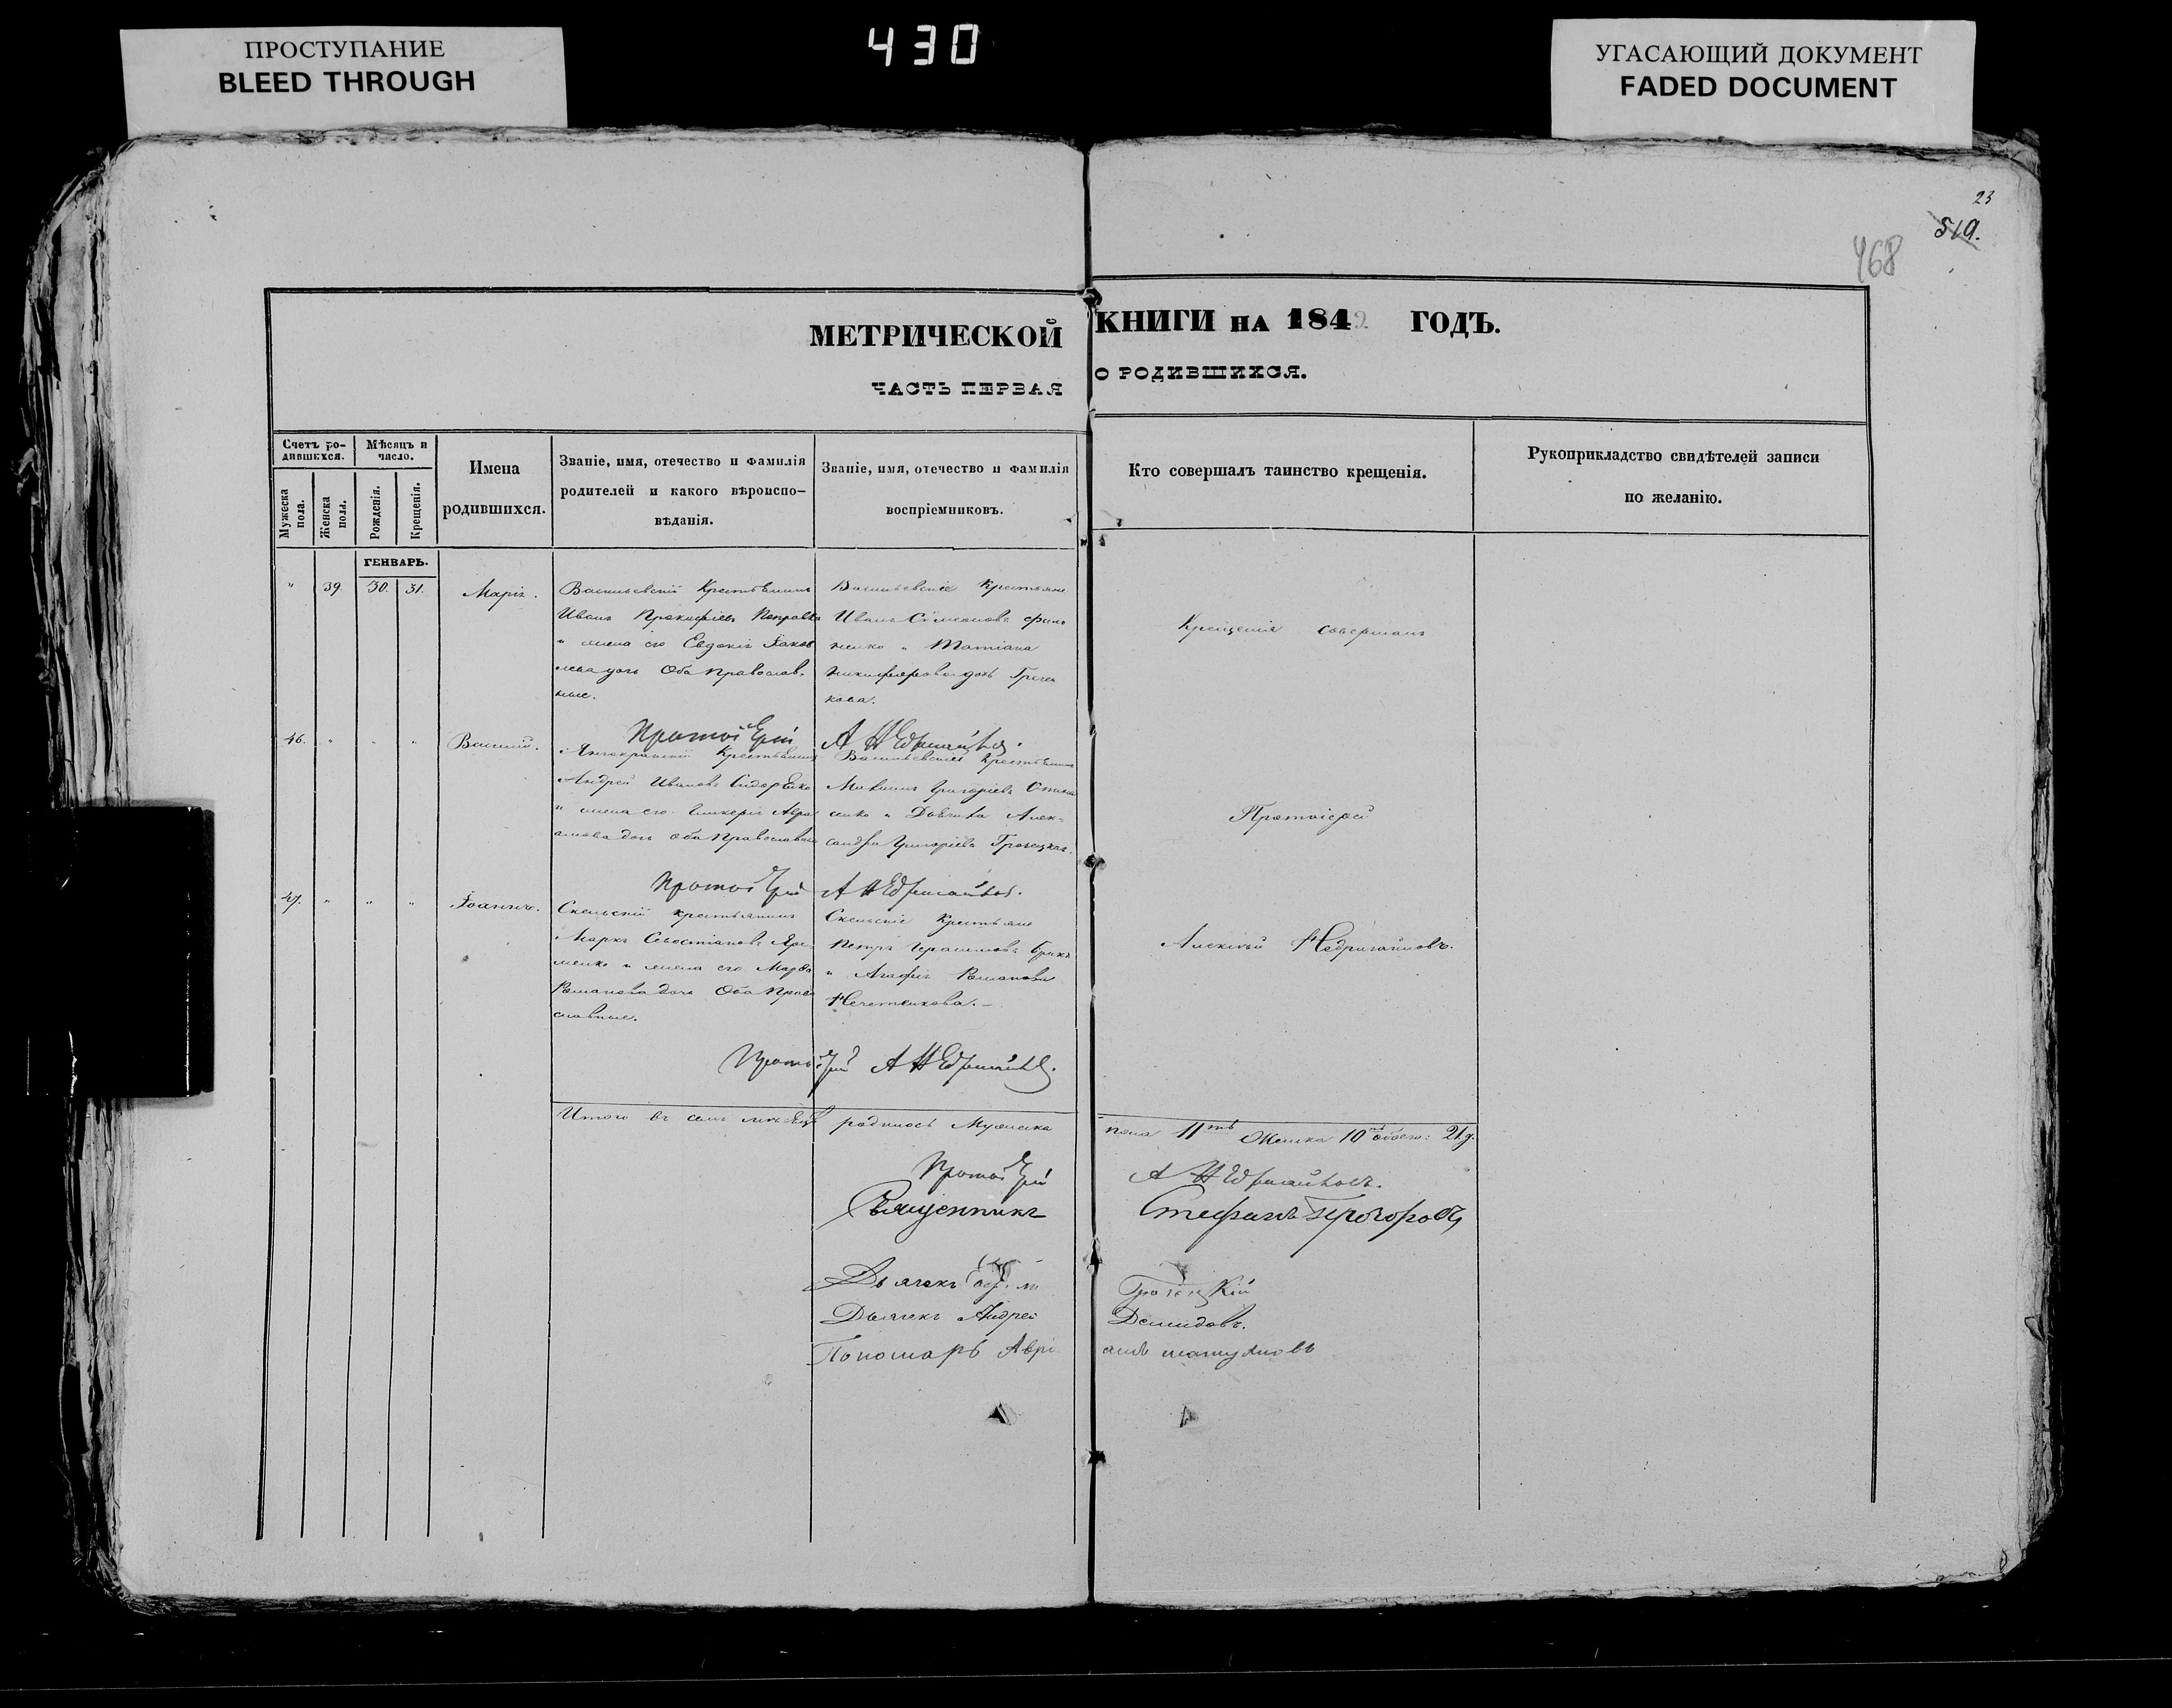 ПРОСТУПАНИЕ
BLEED THROUGH
430
УГАСАЮЩИЙ ДОКУМЕНТ
FADED DOCUMENT
23
519.
468
МЕТРИЧЕСКОЙ КНИГИ НА 1849 ГОДЪ.
ЧАСТЬ ПЕРВАЯ О РОДИВШИХСЯ.
Счетъ ро-
дившихся.
Мужеска
пола.
Женска
пола.
Мѣсяцъ и
число.
Рожденія.
Крещенія.
Имена
родившихся.
Званіе, имя, отечество и фамилія
родителей и какого вѣроиспо-
вѣданія.
Званіе, имя, отечество и фамилія
воспріемниковъ.
Кто совершалъ таинство крещенія.
Рукоприкладство свидѣтелей записи
по желанію.
ГЕНВАРЬ.
" 39. 30. 31.
Марія.
Васильевскій Крестьянинъ
Иванъ Прокофіевъ
и жена его Евдокія Іаков
лева дочь Оба православ-
ные.
Васильевскіе Крестьяне
Иванъ Сѵмеоновъ
и Татіана
Никифорова дочь
кова.
Крещенія совершалъ
Протоіерей А Недригайловъ.
46. " " "
Василій.
Крестьянинъ
Андрей Ивановъ Сидоренко
и жена его Гликерія Авра
амова дочь оба Православные
Васильевскіе Крестьянинъ
Михаилъ Григоріевъ
сенко и Алек-
сандра Григоріева
Протоіерей
Протоіерей А Недригайловъ.
47. " " "
Іоаннъ.
Скельскій крестьянинъ
Маркъ Севостіановъ Яре-
менко и жена его Марѳа
Романова дочь Оба Право
славные.
Скельскіе Крестьяне
Петръ Герасимовъ
и Агафія Романова
Алексѣй Недригайловъ.
Протоіерей А Недригайловъ.
Итого въ семъ мѣсяцѣ родилось Мужеска
пола 11ть Женска 10ть обоего: 21 д.
Протоіерей А Недригайловъ.
Священникъ Стефанъ Прохоровъ
Дьячекъ
Дьячекъ Андрей Демидовъ.
Пономарь